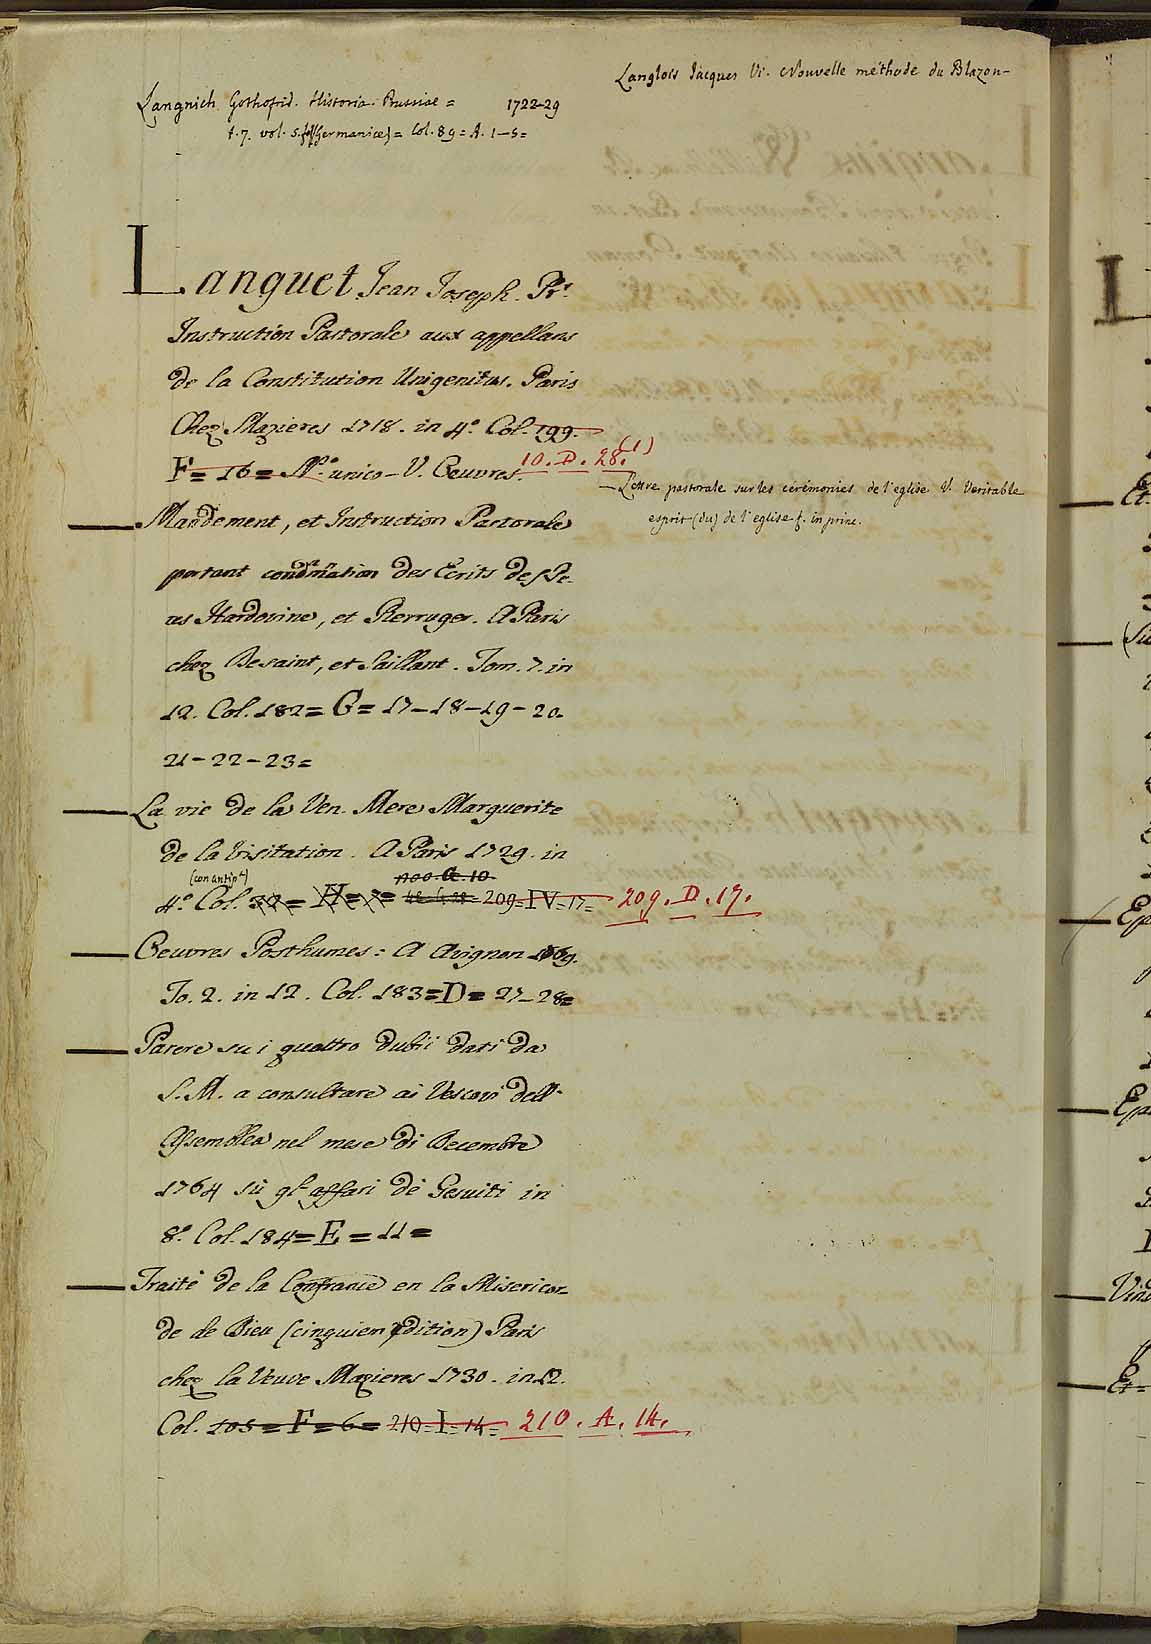 Langlois Jacques Vi. Nouvelle méthode du Blazon-
Langnich Gothofrid. Historia. Prussiae = 1722-29
t. 7. vol. 5. (Germanice) = Col. 89 = A. 1-5=
Languet Jean Joseph. Pr.
Instruction Pastorale aux appellans
de la Constitution Unigenitus. Paris
Chez Mazieres 1718. in 4.° Col. 199.
F= 16= N.° unico - V. Oeuvres. 10. D. 28. (1)
— Lettre pastorale sur les cérémonies de l'eglise V. Veritable
esprit (du) de l'eglise f. in princ.
Mandement, et Instruction Pastorale
portant condamnation des Ecrits des Pe-
res Hardovine, et Berruger. A Paris
chez Desaint, et Saillant. Tom. 7. in
12. Col. 182= G= 17-18-19-20-
21-22-23=
La vie de la Ven. Mere Marguerite
de la Visitation. A Paris 1729. in
(con antip.ª) 100. C. 10.
4.° Col. = H= = 209=IV=17= 209. D. 17.
Oeuvres Posthumes: A Avignon
To. 2. in 12. Col. 183=D= 27-28=
Parere su i quattro dubii dati da
S. M. a consultare ai Vescovi dell'
Assemblea nel mese di Decembre
1764 sù gl'affari de Gesuiti in
8.° Col. 184=E=11=
Traité de la Confiance en la Misericor=
de de Dieu (cinquiem edition) Paris
chez la Veuve Mazieres 1730. in 12.
Col. 105=F=6= 210=I=14= 210. A. 14.